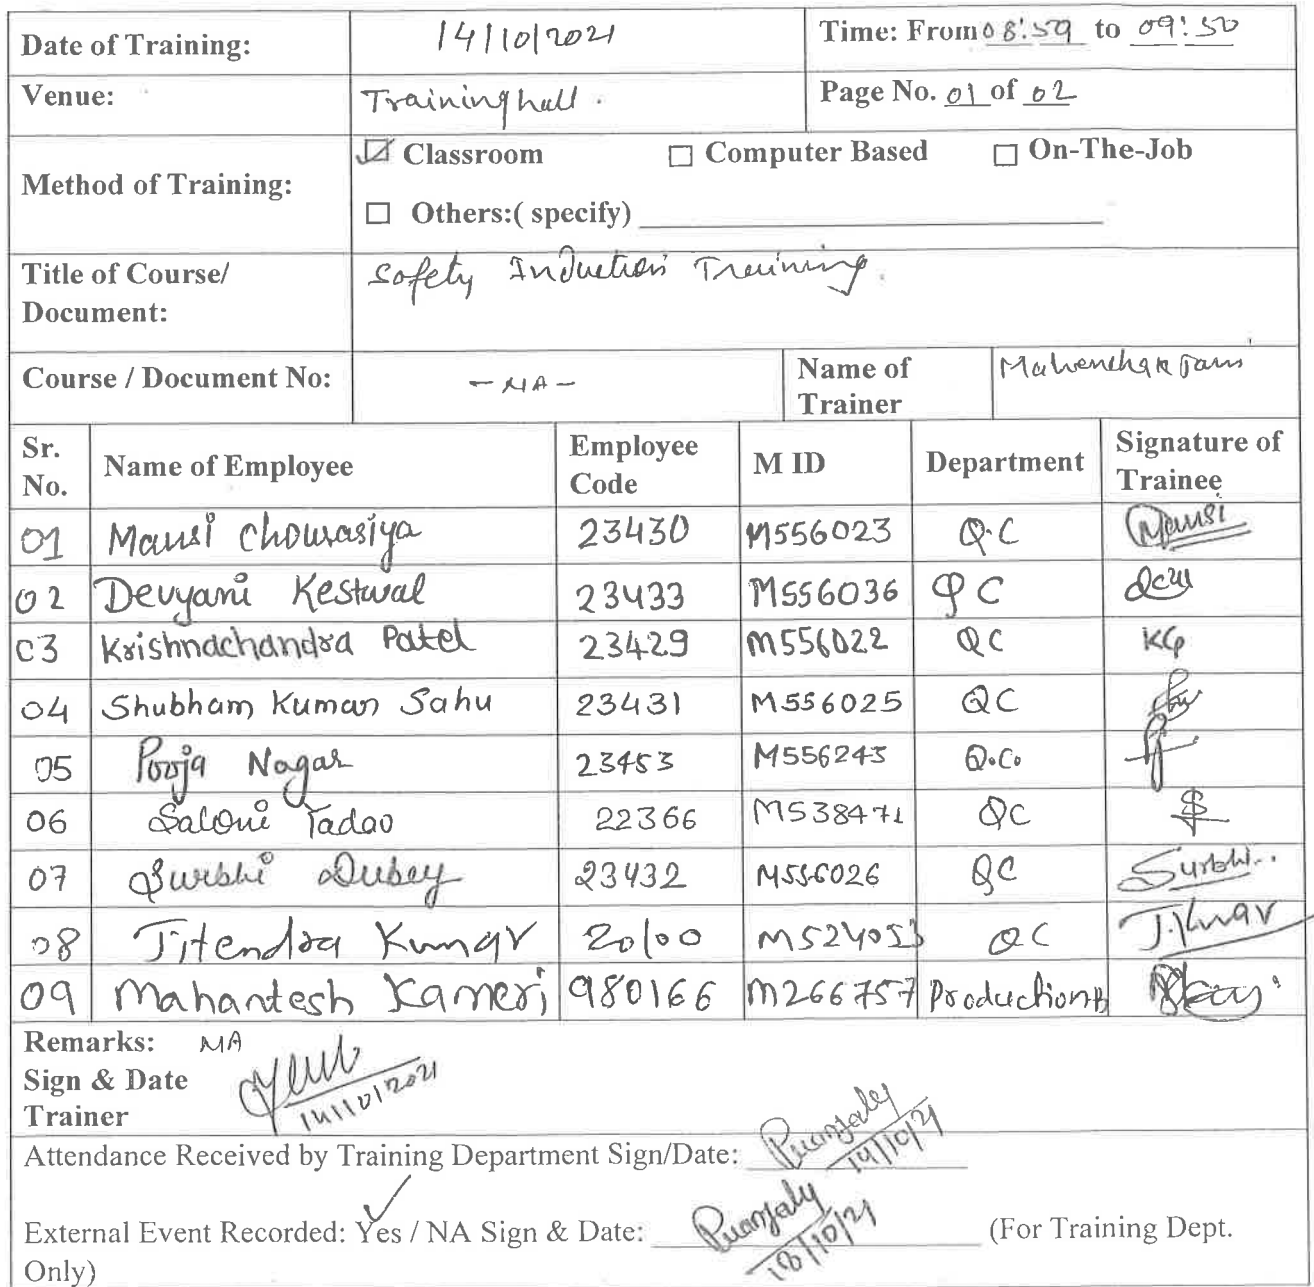 Date of Training: 14/10/2021 Time: From 08:59 to 09:50
Venue: Training hall. Page No. 01 of 02
Method of Training: ☑ Classroom ☐ Computer Based ☐ On-The-Job
☐ Others:( specify)
Title of Course/ Safety Induction Training.
Document:
Course / Document No: - NA - Name of Trainer
Sr. No. Name of Employee Employee Code M ID Department Signature of Trainee
01 Mansi Chourasiya 23430 M556023 Q.C Mansi
02 Devyani Kestwal 23433 M556036 QC
03 Krishnachandra Patel 23429 M556022 QC KCP
04 Shubham Kumar Sahu 23431 M556025 QC
05 Pooja Nagar 23453 M556243 Q.C.
06 Saloni Yadav 22366 M538471 QC
07 Surbhi Dubey 23432 M556026 QC Surbhi..
08 Jitendra Kumar 20100 M524053 QC J.Kumar
09 Mahantesh Kameri 980166 M266757 Production
Remarks: NA
Sign & Date
Trainer 14/10/2021
Attendance Received by Training Department Sign/Date: 14/10/21
External Event Recorded: Yes / NA Sign & Date: 18/10/21 (For Training Dept.
Only)